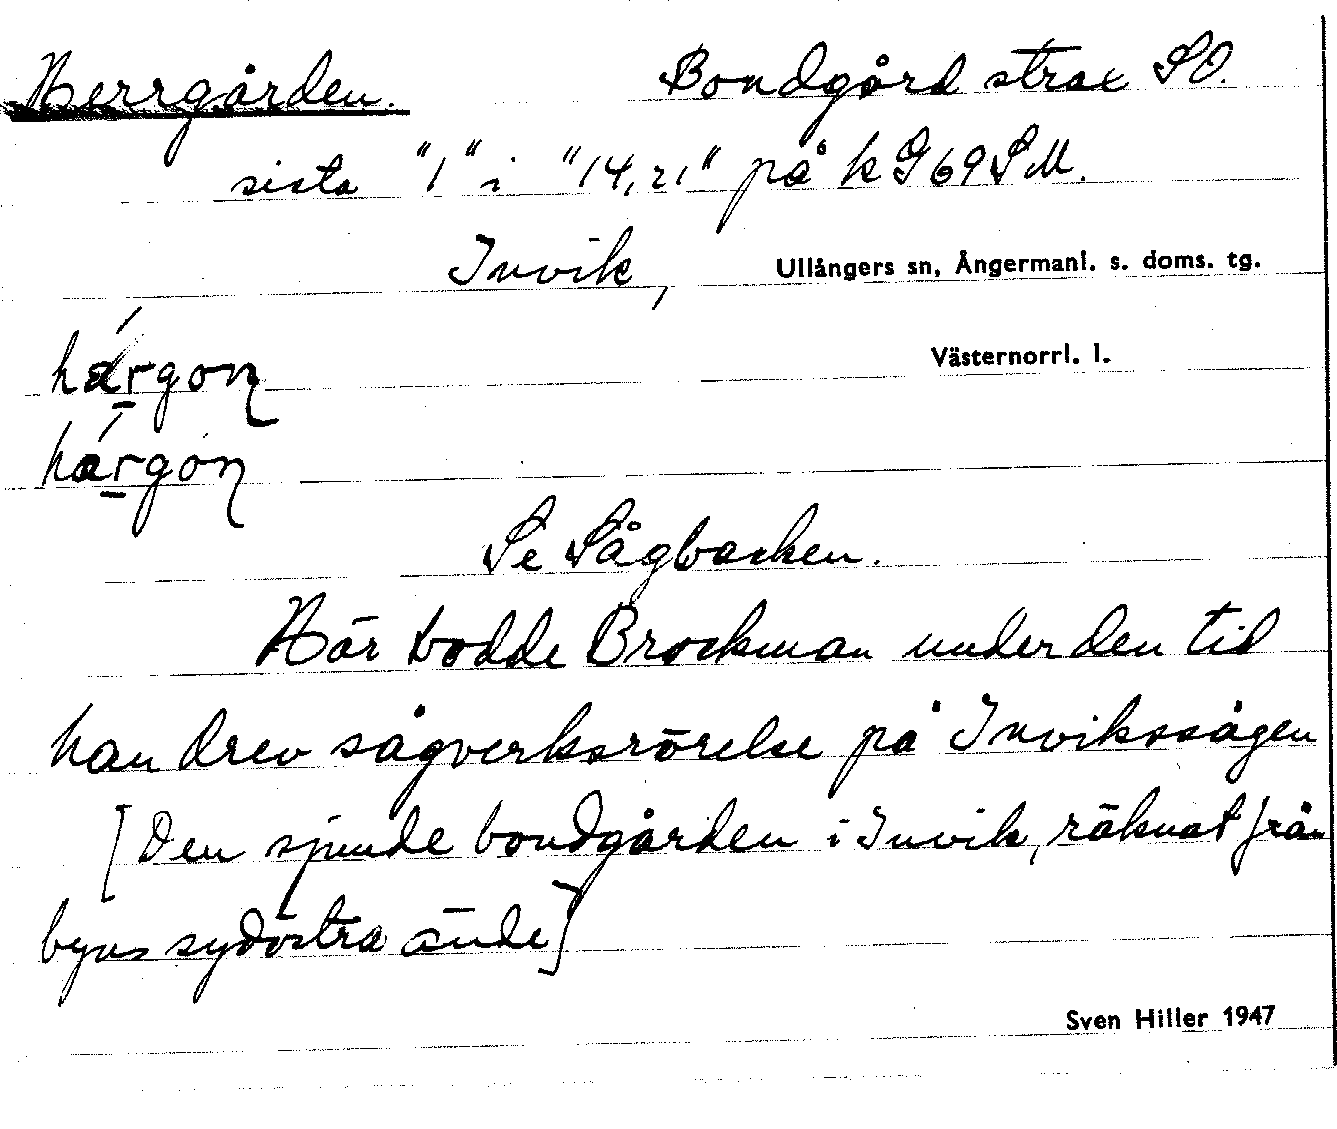 Herrgården. Bondgård strax SO.
sista "1" i "14,21" på k G69SM.
Invik, Ullångers sn, Ångermanl. s. doms. tg.
hárgon Västernorrl. l.
hárgon
Se Sågbacken.
Här bodde Brockman under den tid
han drev sågverksrörelse på Invikssågen
[Den sjunde bondgården i Invik, räknat från
byns sydöstra ände]
Sven Hiller 1947